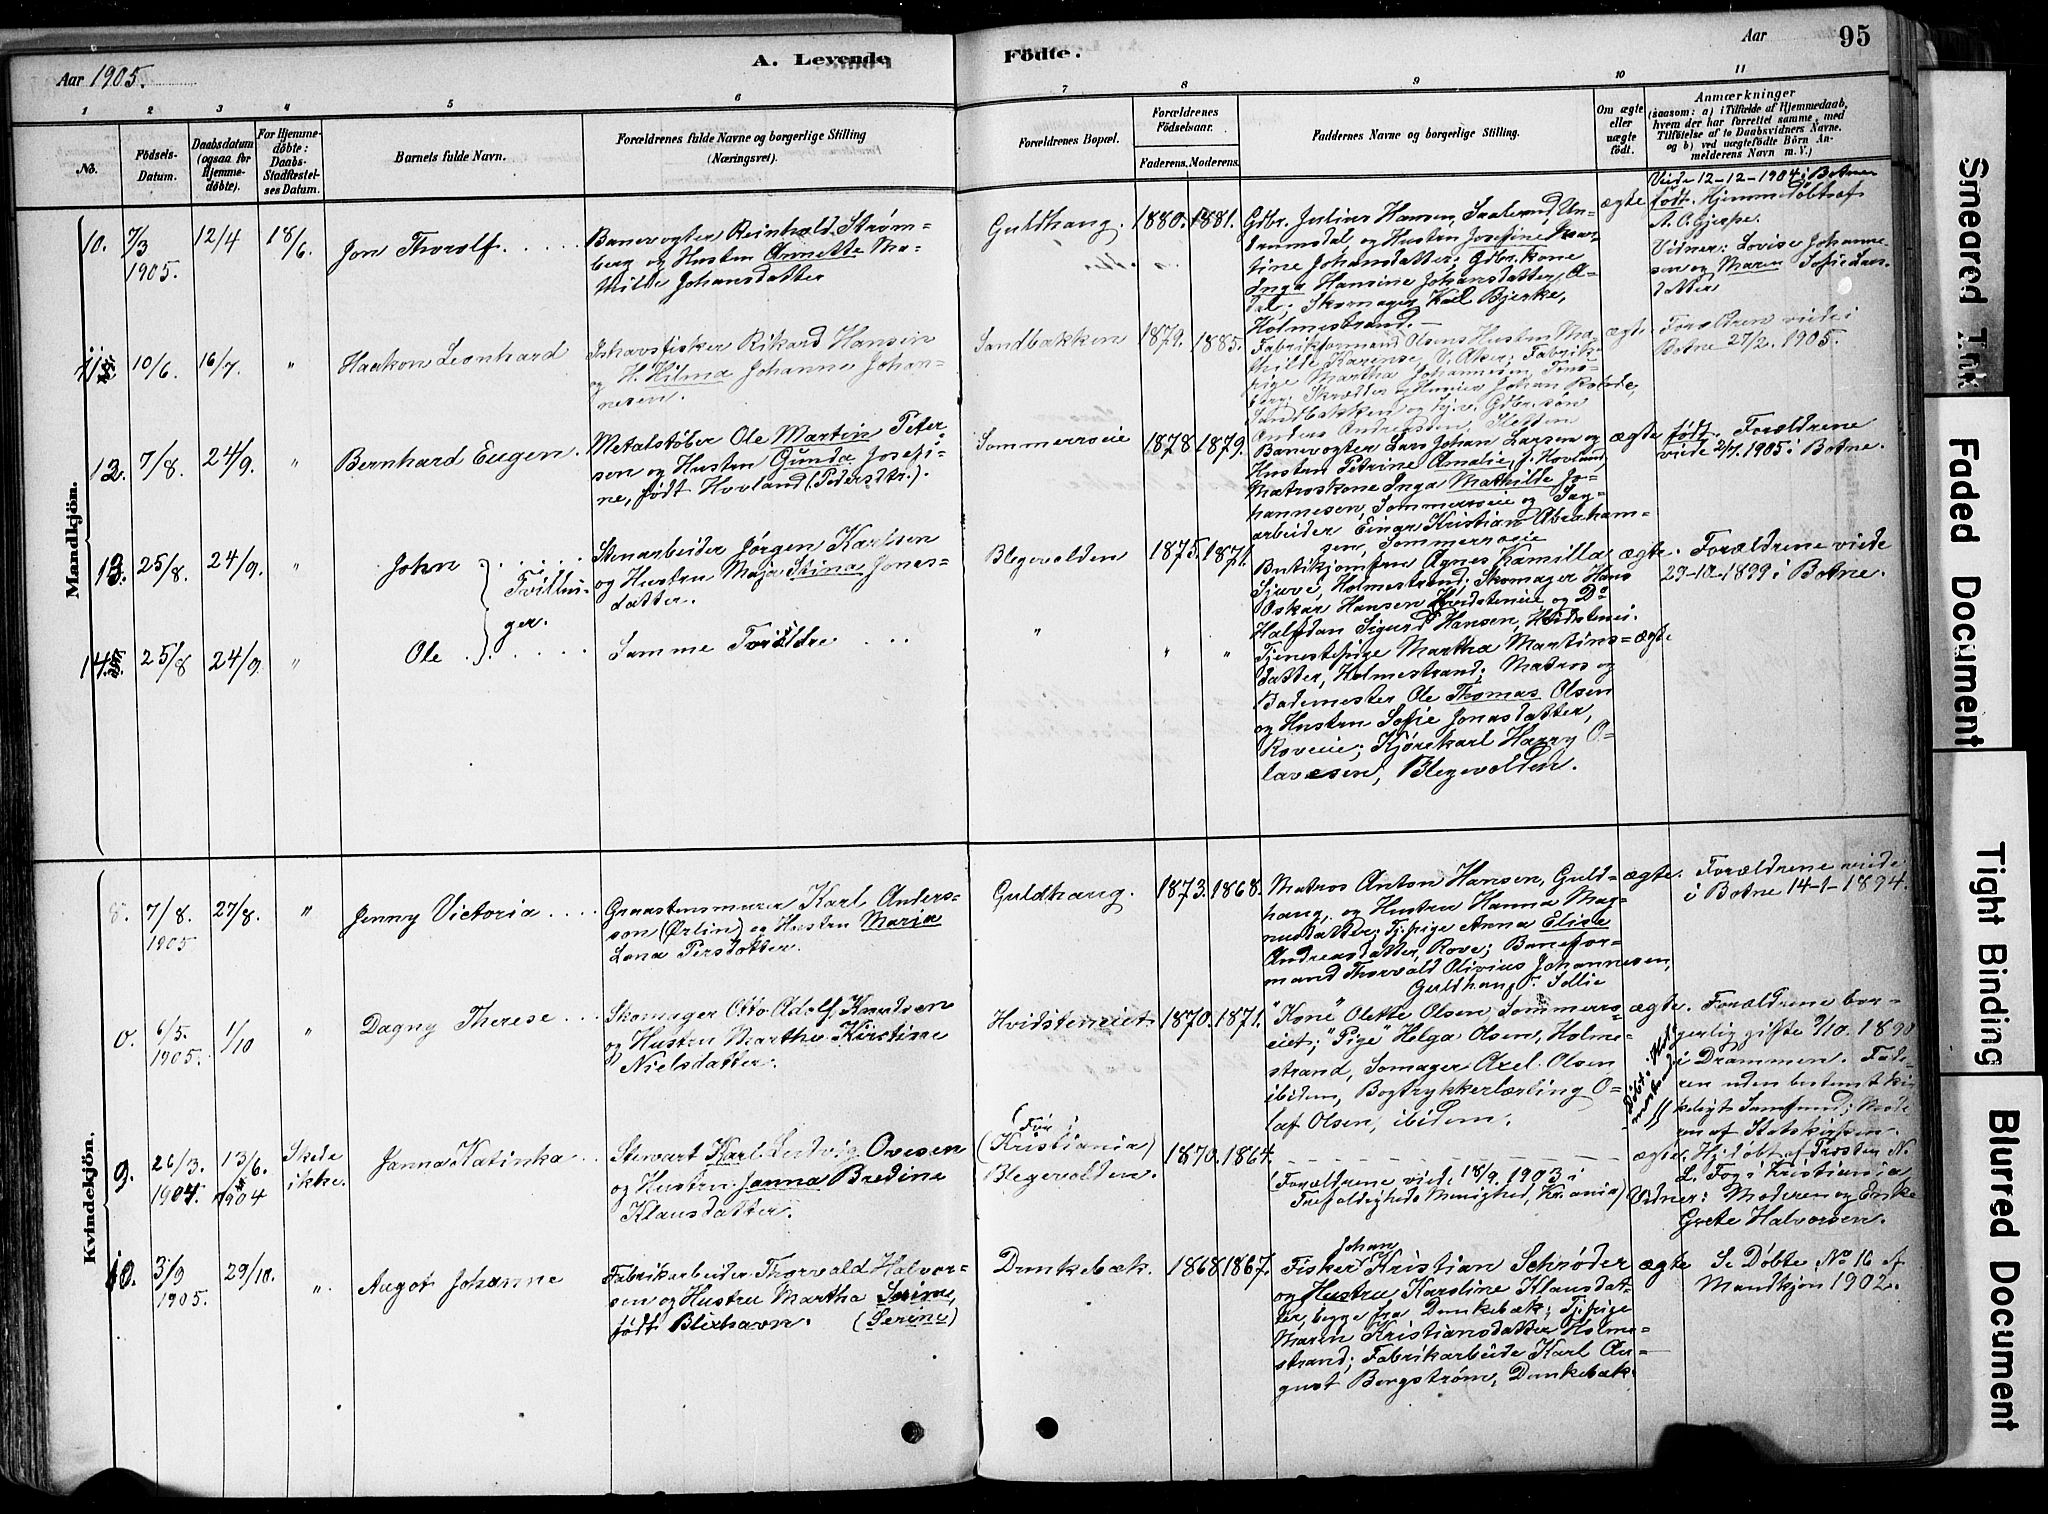 Aar 1905.
A. Levende
Födte.
Aar
95
1
2
3
4
5
6
7
8
9
10
11
No.
Födsels-
Datum.
Daabsdatum
(ogsaa for
Hjemme-
døbte).
For Hjemme-
døbte:
Daabs-
Stadfæstel-
ses Datum.
Barnets fulde Navn.
Forældrenes fulde Navne og borgerlige Stilling
(Næringsvei).
Forældrenes Bopæl.
Forældrenes
Födselsaar.
Faderens.
Moderens.
Faddernes Navne og borgerlige Stilling.
Om ægte
eller
uægte
født.
Anmærkninger
(saasom: a) i Tilfælde af Hjemmedaab,
hvem der har forrettet samme, med
Tilföielse af to Daabsvidners Navne.
og b) ved uægtefödte Börn An-
melderens Navn m. V.)
Mandkjön.
10.
7/3
1905.
12/4
18/6.
Jon Thorolf.
Banevogter Reinhold Strøm-
berg og Hustru Annette Ma-
thilde Johansdatter
Guldhaug.
1880.
1881.
Gdbr. Julius Hansen, Saaterud An-
drumsdal, og Hustru Josefine Mar-
tine Johansdatter; Gdbr.kone
Inga Hansine Johansdatter, A-
dal; Skomager Karl Bjerke,
Holmestrand. —
ægte
Viede 12-12-1904 i Botne
født. Hjemmedøbt af
A. O. Gjerpe.
Vidner: Lovise Johanne-
sen og Maren Sofie
datter
11
10/6.
16/7.
"
Haakon Leonhard
Ishavsfisker Rikard Hansen
og H. Hilma Johanne Johan-
nesen.
Sandbakken
1879.
1885.
Fabrikformand Olsens Hustru Ma-
thilde Karense, V. Aker; Fabrik-
pige Martha Johannesen, Tøns-
berg; Skrædder Johan
Sandbakken og Gdbr.søn
Anders Andreassen,
ægte
Forældren viede i
Botne 27/2. 1905.
12.
7/8.
24/9.
"
Bernhard Eugen.
Metalstøber Ole Martin Peter-
sen og Hustru Gunda Josefi-
ne, født Hovland (Pedersdtr.).
Sommerroeie
1878
1879.
Banevogter Lars Johan Larsen og
Hustru Petrine Amalie, f. Hovland,
Matroskone Inga Mathilde Jo-
hannesen, Sommerroeie og Sag-
arbeider Einar Kristian Abraham-
sen, Sommerroeie
ægte
født. Forældrene
viede 2/7. 1905 i Botne.
13.
25/8.
24/9.
"
John
Tvillin-
ger.
Stenarbeider Jørgen Karlsen
og Hustru Maja Stina Jonas-
datter.
Blegevolden
1875.
1871.
Butikjomfru Agnes Kamilla
Sjuve, Holmestrand; Skomager Hans
Oskar Hansen Hvidsteneie og Do
Halfdan Sigurd Hansen, Hvidstenei.
ægte.
Forældrene viede
29-10-1899 i Botne.
14
25/8
24/9.
"
Ole
Samme Forældre
"
"
"
Tjenestepige Martha Martins-
datter, Holmestrand; Matros og
Bademester Ole Thomas Olsen
og Hustru Sofie Jonasdatter,
Roveie; Kjørekarl Harry O-
lavesen, Blegevolden.
ægte
Kvindekjön.
8.
7/8.
1905
27/8.
"
Jenny Victoria
Graastensmurer Karl Anders-
son (Ørlin) og Hustru Maria
Lena Persdatter.
Guldhaug.
1873.
1868.
Matros Anton Hansen, Guld-
haug, og Hustru Hanna Mag-
nusdatter; Tj.pige Anna Elise
Andreasdatter, Rove; Banefor-
mand Thorvald Olivius Johannesen,
Guldhaug.
ægte.
Forældrene viede
i Botne 14-1-1894.
0.
6/5.
1905.
1/10
"
Dagny Therese
Skomager Otto Adolf Knudsen
og Hustru Marthe Kirstine
Nielsdatter.
Hvidsteneiet
1870.
1871.
"Kone" Olette Olsen, Sommerro-
eiet; "Pige" Helga Olsen, Holme-
strand, Somager Axel Olsen
ibidem, Bogtrykkerlærling O-
laf Olsen, ibidem.
ægte.
Forældrene bor-
gerlig gifte 9/10. 1890
i Drammen. Fade-
ren uden bestemt kir-
keligt Samfund; Mode-
ren af Statskirken.
9.
26/3.
1904.
13/6.
1904
Skede
ikke.
Janna Katinka
Stewart Karl Ludvig Ovesen
og Hustru Janna Bredine
Klausdatter.
(Før i
(Kristiania)
Blegevolden.
1870.
1864.
(Forældrene viede 18/9. 1903 i
Trefoldigheds Menighed, Kr.ania)
ægte.
Hj.døbt af Presten N.
L. Fog i Kristiania
Vidner: Moderen og Enke
Grete Halvorsen.
10.
3/9
1905.
29/10.
"
Aagot Johanne
Fabrikarbeider Thorvald Halvor-
sen og Hustru Martha Serine,
født Blixhavn. (Serine)
Dunkebæk.
1868
1867.
Johan
Fisker Kristian Schrøder
og Hustru Karoline Klausdat-
ter, begge fra Dunkebæk; Tj.pige
Maren Kristiansdatter Holme-
strand; Fabrikarbeide Karl Au-
gust Bergstrøm, Dunkebæk.
ægte
Se Døbte No 16 af
Mandkjøn 1902.
Smeared Ink
Faded Document
Tight Binding
Blurred Document